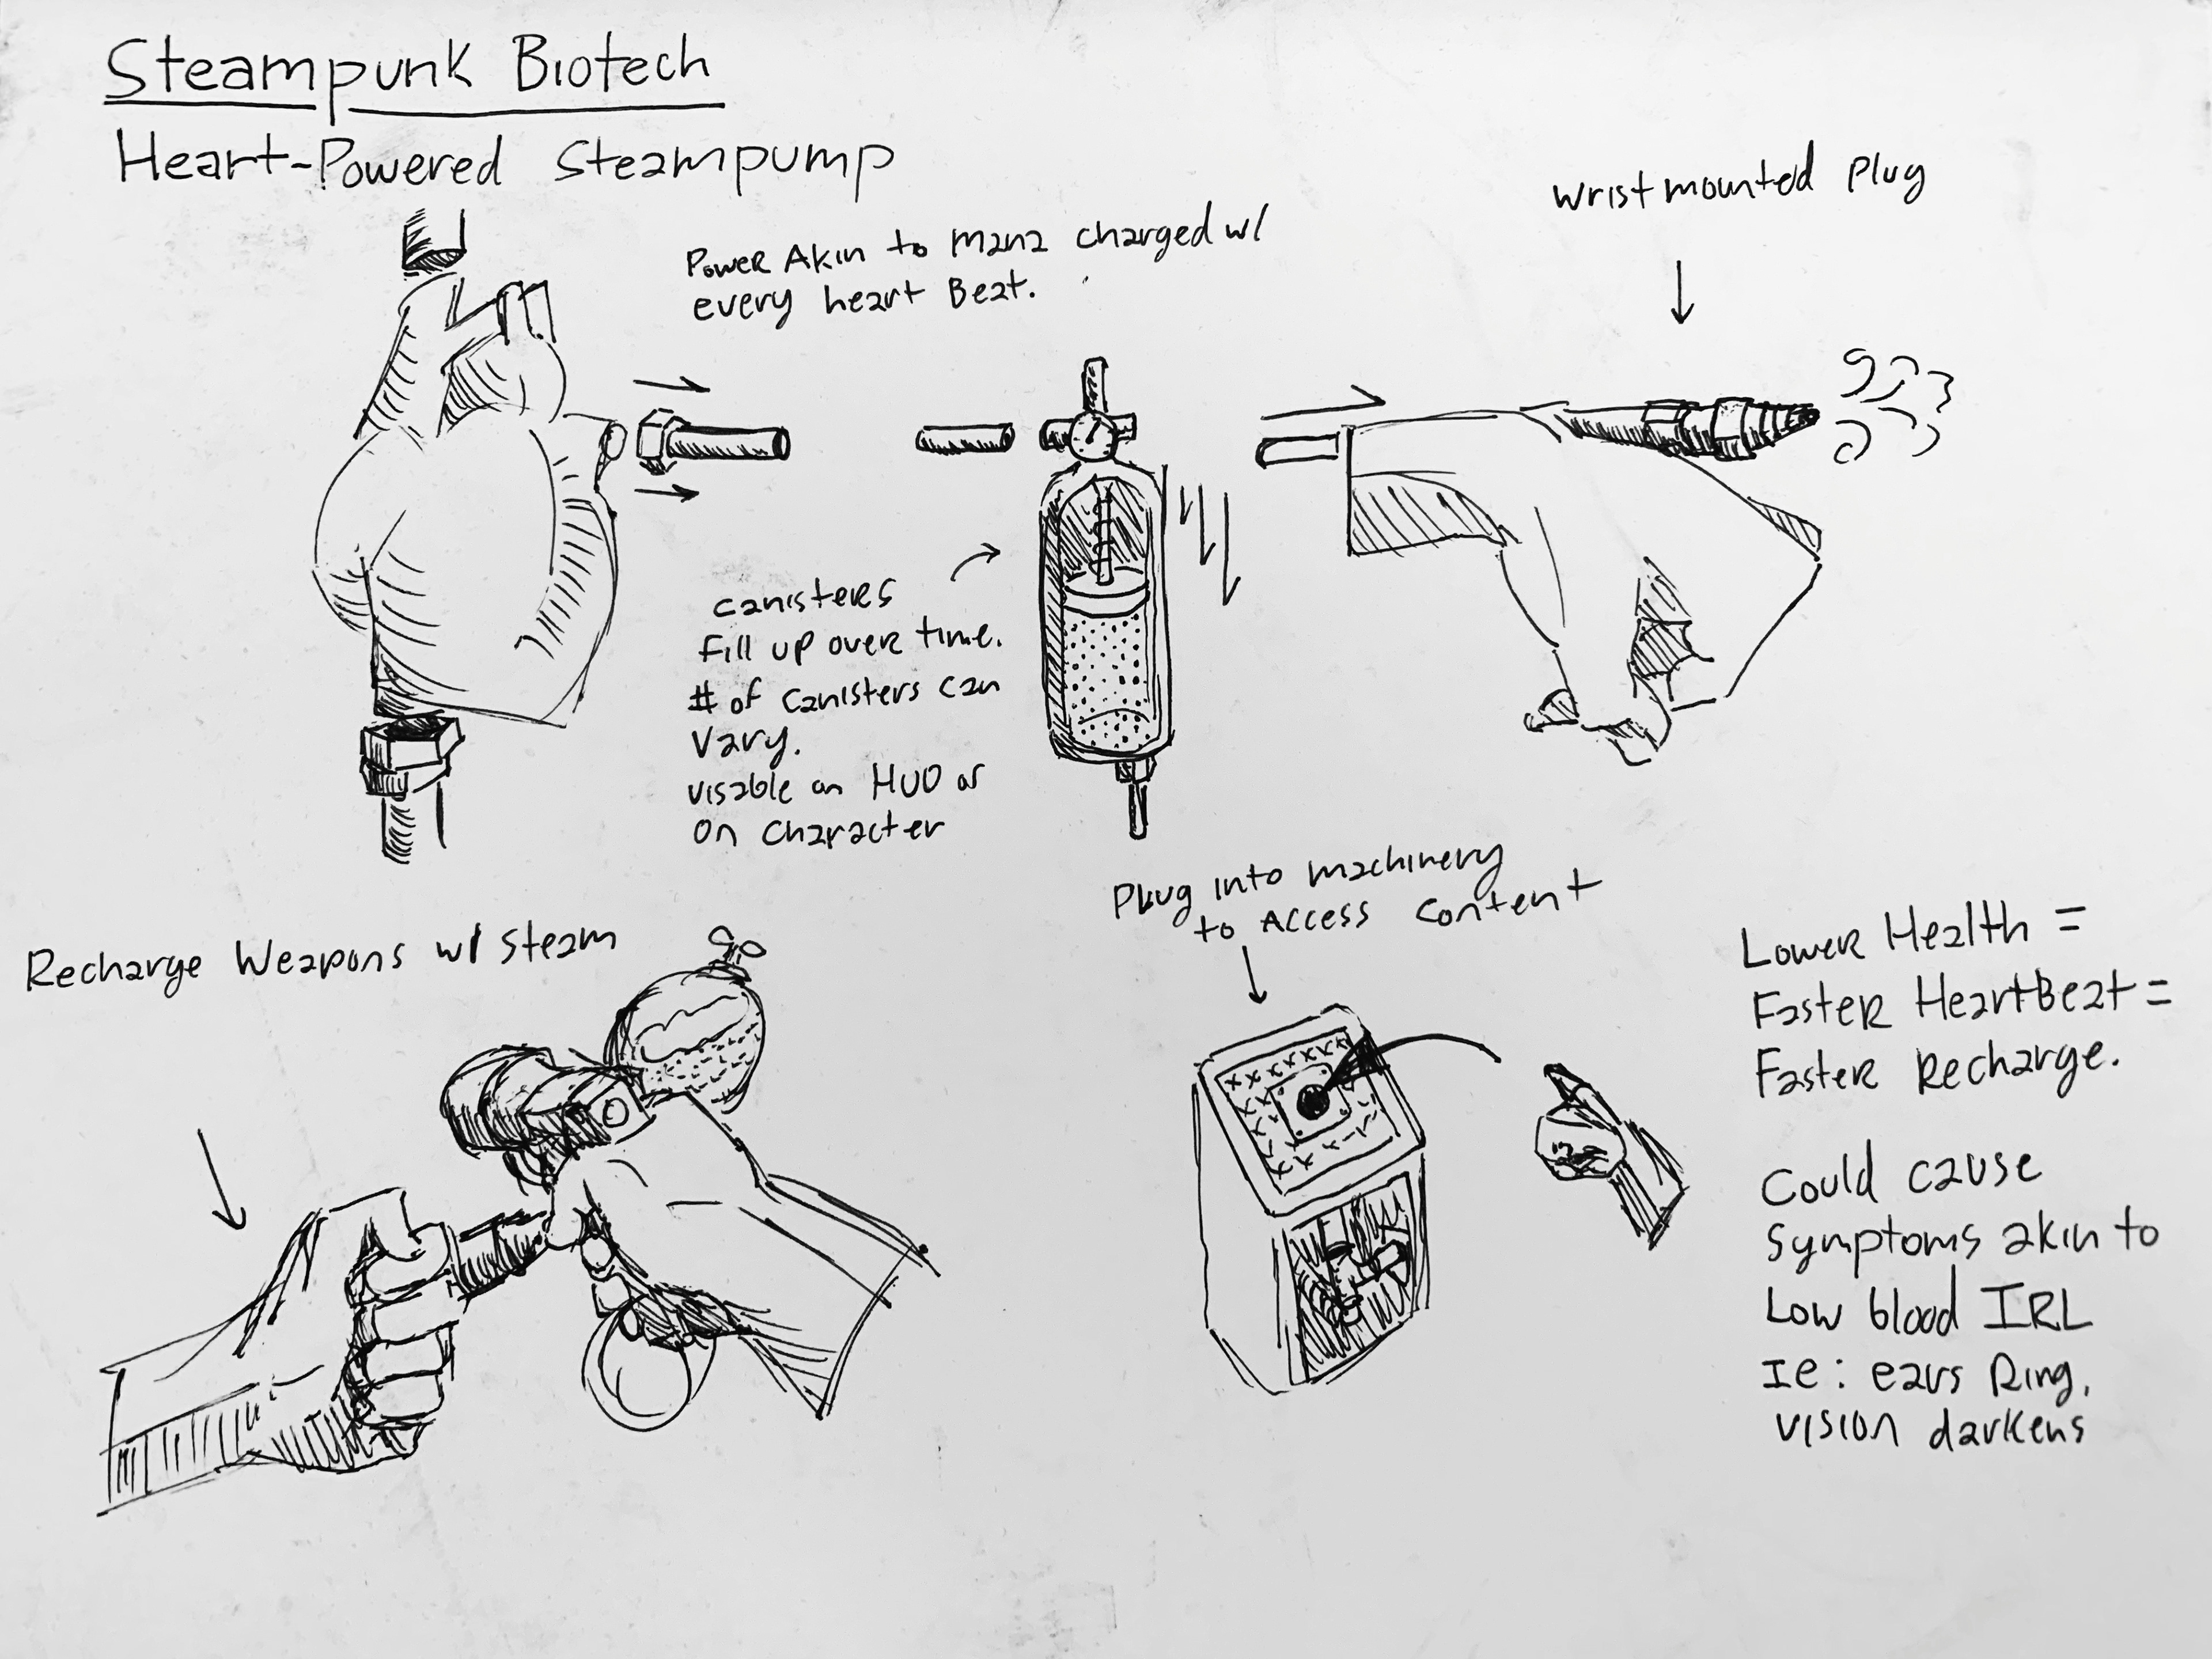 Steampunk Biotech
Heart-Powered Steampump
Power Akin to Mana charged w/
every heart Beat.
Wrist mounted Plug
canisters
Fill up over time.
# of canisters can
vary.
visable on HUD or
on character
Plug into machinery
to Access content
Recharge Weapons w/ steam
Lower Health =
Faster HeartBeat =
Faster Recharge.
Could cause
symptoms akin to
Low blood IRL
IE: ears Ring,
vision darkens